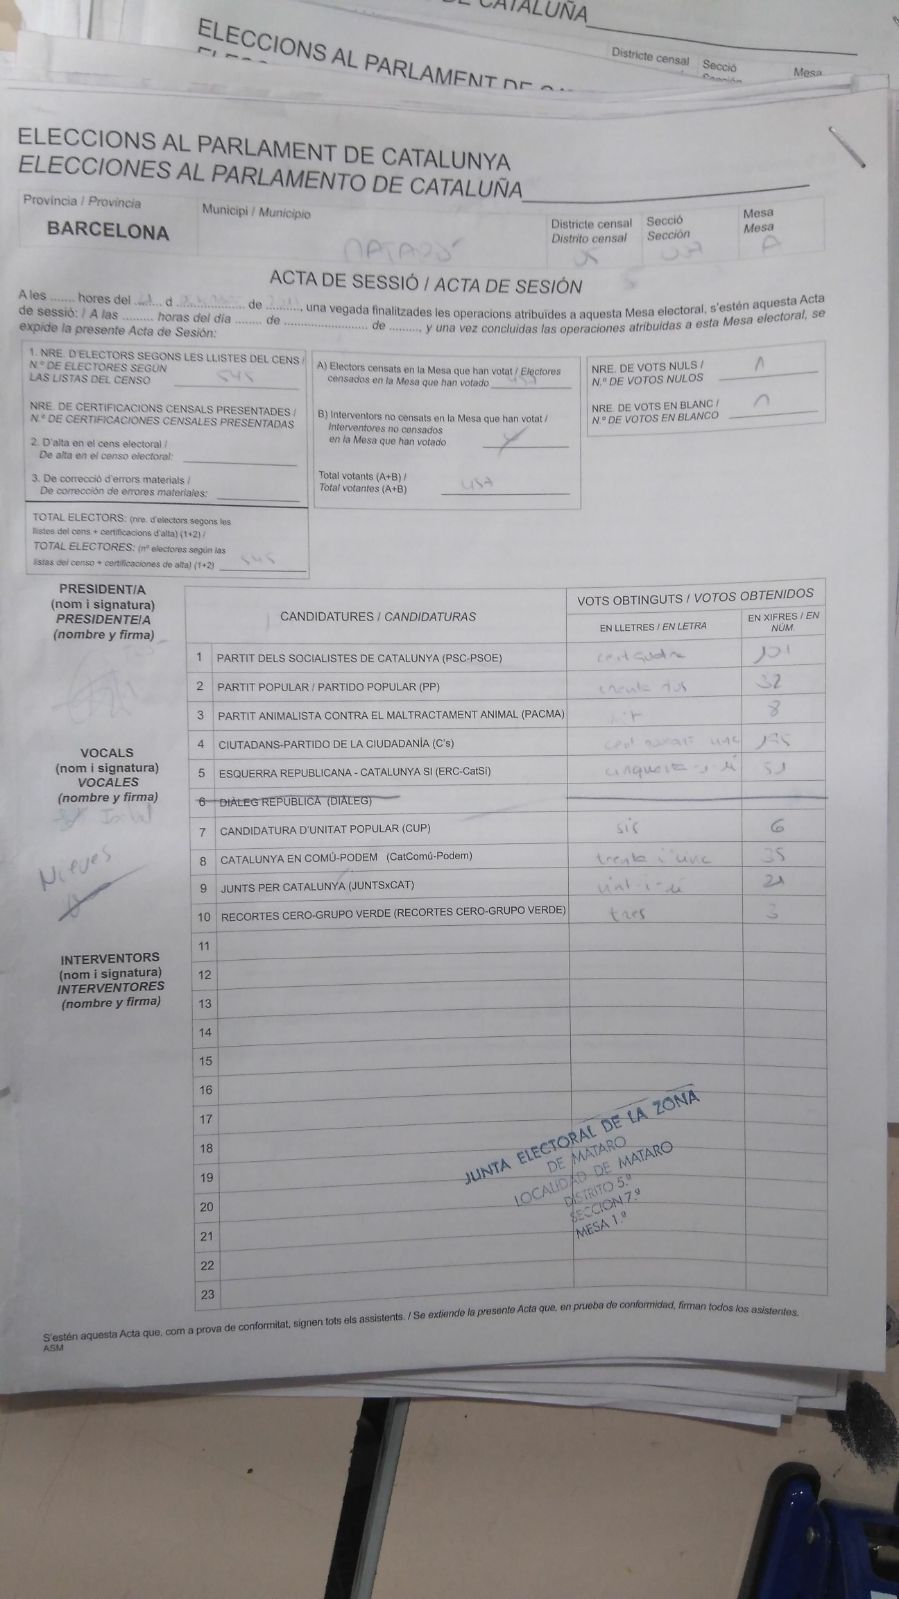 DE CATALUÑA
ELECCIONS AL PARLAMENT DE
Districte censal
Secció
Mesa
ELECCIONS AL PARLAMENT DE CATALUNYA
ELECCIONES AL PARLAMENTO DE CATALUÑA
Província / Provincia
BARCELONA
Municipi / Municipio
MATARÓ
Districte censal
Distrito censal
05
Secció
Sección
007
Mesa
Mesa
A
ACTA DE SESSIÓ / ACTA DE SESIÓN
A les ....... hores del ....... d ................. de ........, una vegada finalitzades les operacions atribuïdes a aquesta Mesa electoral, s'estén aquesta Acta
de sessió: / A las ......... horas del día ....... de ........................ de ........., y una vez concluidas las operaciones atribuidas a esta Mesa electoral, se
expide la presente Acta de Sesión:
1. NRE. D'ELECTORS SEGONS LES LLISTES DEL CENS /
N.º DE ELECTORES SEGÚN
LAS LISTAS DEL CENSO 545
NRE. DE CERTIFICACIONS CENSALS PRESENTADES /
N.º DE CERTIFICACIONES CENSALES PRESENTADAS
2. D'alta en el cens electoral /
De alta en el censo electoral:
3. De correcció d'errors materials /
De corrección de errores materiales:
TOTAL ELECTORS: (nre. d'electors segons les
llistes del cens + certificacions d'alta) (1+2) /
TOTAL ELECTORES: (nº electores según las
listas del censo + certificaciones de alta) (1+2) 545
A) Electors censats en la Mesa que han votat / Electores
censados en la Mesa que han votado
B) Interventors no censats en la Mesa que han votat /
Interventores no censados
en la Mesa que han votado
Total votants (A+B) /
Total votantes (A+B)
NRE. DE VOTS NULS /
N.º DE VOTOS NULOS 1
NRE. DE VOTS EN BLANC /
N.º DE VOTOS EN BLANCO
PRESIDENT/A
(nom i signatura)
PRESIDENTE/A
(nombre y firma)
VOCALS
(nom i signatura)
VOCALES
(nombre y firma)
Isabel
Nieves
INTERVENTORS
(nom i signatura)
INTERVENTORES
(nombre y firma)
CANDIDATURES / CANDIDATURAS
VOTS OBTINGUTS / VOTOS OBTENIDOS
EN LLETRES / EN LETRA
EN XIFRES / EN
NÚM.
1 PARTIT DELS SOCIALISTES DE CATALUNYA (PSC-PSOE)
2 PARTIT POPULAR / PARTIDO POPULAR (PP) trenta dos 32
3 PARTIT ANIMALISTA CONTRA EL MALTRACTAMENT ANIMAL (PACMA) vuit 8
4 CIUTADANS-PARTIDO DE LA CIUDADANÍA (C's) cent
5 ESQUERRA REPUBLICANA - CATALUNYA SÍ (ERC-CatSí) cinquanta-i-ú 51
6 DIÀLEG REPÚBLICA (DIÀLEG)
7 CANDIDATURA D'UNITAT POPULAR (CUP) sis 6
8 CATALUNYA EN COMÚ-PODEM (CatComú-Podem) trenta i cinc 35
9 JUNTS PER CATALUNYA (JUNTSxCAT) vint-i-ú 21
10 RECORTES CERO-GRUPO VERDE (RECORTES CERO-GRUPO VERDE) tres 3
11
12
13
14
15
16
17
18
19
20
21
22
23
JUNTA ELECTORAL DE LA ZONA
DE MATARO
LOCALIDAD DE MATARO
DISTRITO 5.º
SECCION 7.ª
MESA 1.ª
S'estén aquesta Acta que, com a prova de conformitat, signen tots els assistents. / Se extiende la presente Acta que, en prueba de conformidad, firman todos los asistentes.
ASM